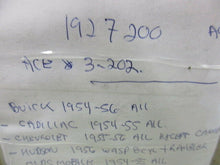 1927200
ACE * 3-202.
BUICK 1954-56 ALL
- CADILLAC 1954-55 ALL
- CHEVROLET 1955-56 ALL EXCEPT
- HUDSON 1956 WASP
OLDSMOBILE 1954-55 ALL